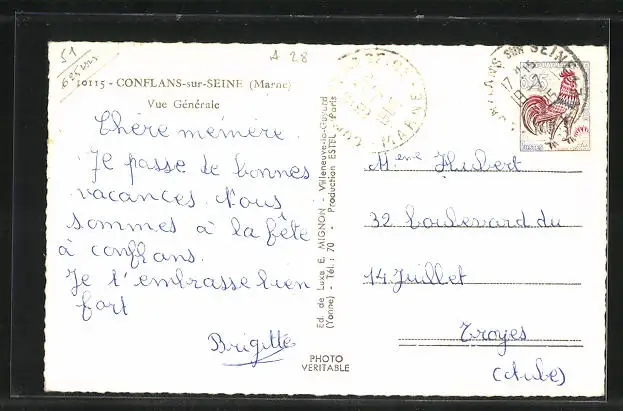 51
A 28
10115 - CONFLANS-sur-SEINE (Marne)
Vue Générale
Chère mémère.
Je passe de bonnes
vacances. Nous
sommes à la fête
à conflans.
Je t'embrasse bien
fort
Brigitte
Ed. de Luxe E. MIGNON - Villeneuve-la-Guyard
(Yonne) - Tél.: 70 - Production ESTEL - Paris
PHOTO
VÉRITABLE
MARNE
17 H 15
0,25
POSTES
Meme Hubert
32 boulevard du
14 Juillet
Troyes
(Aube)